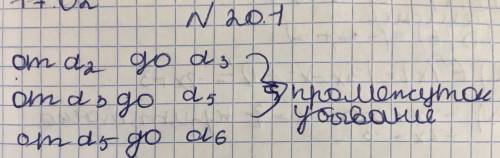 N 20.1
от d2 до d3
от d3 до d5
от d5 до d6
промежуток
убывание